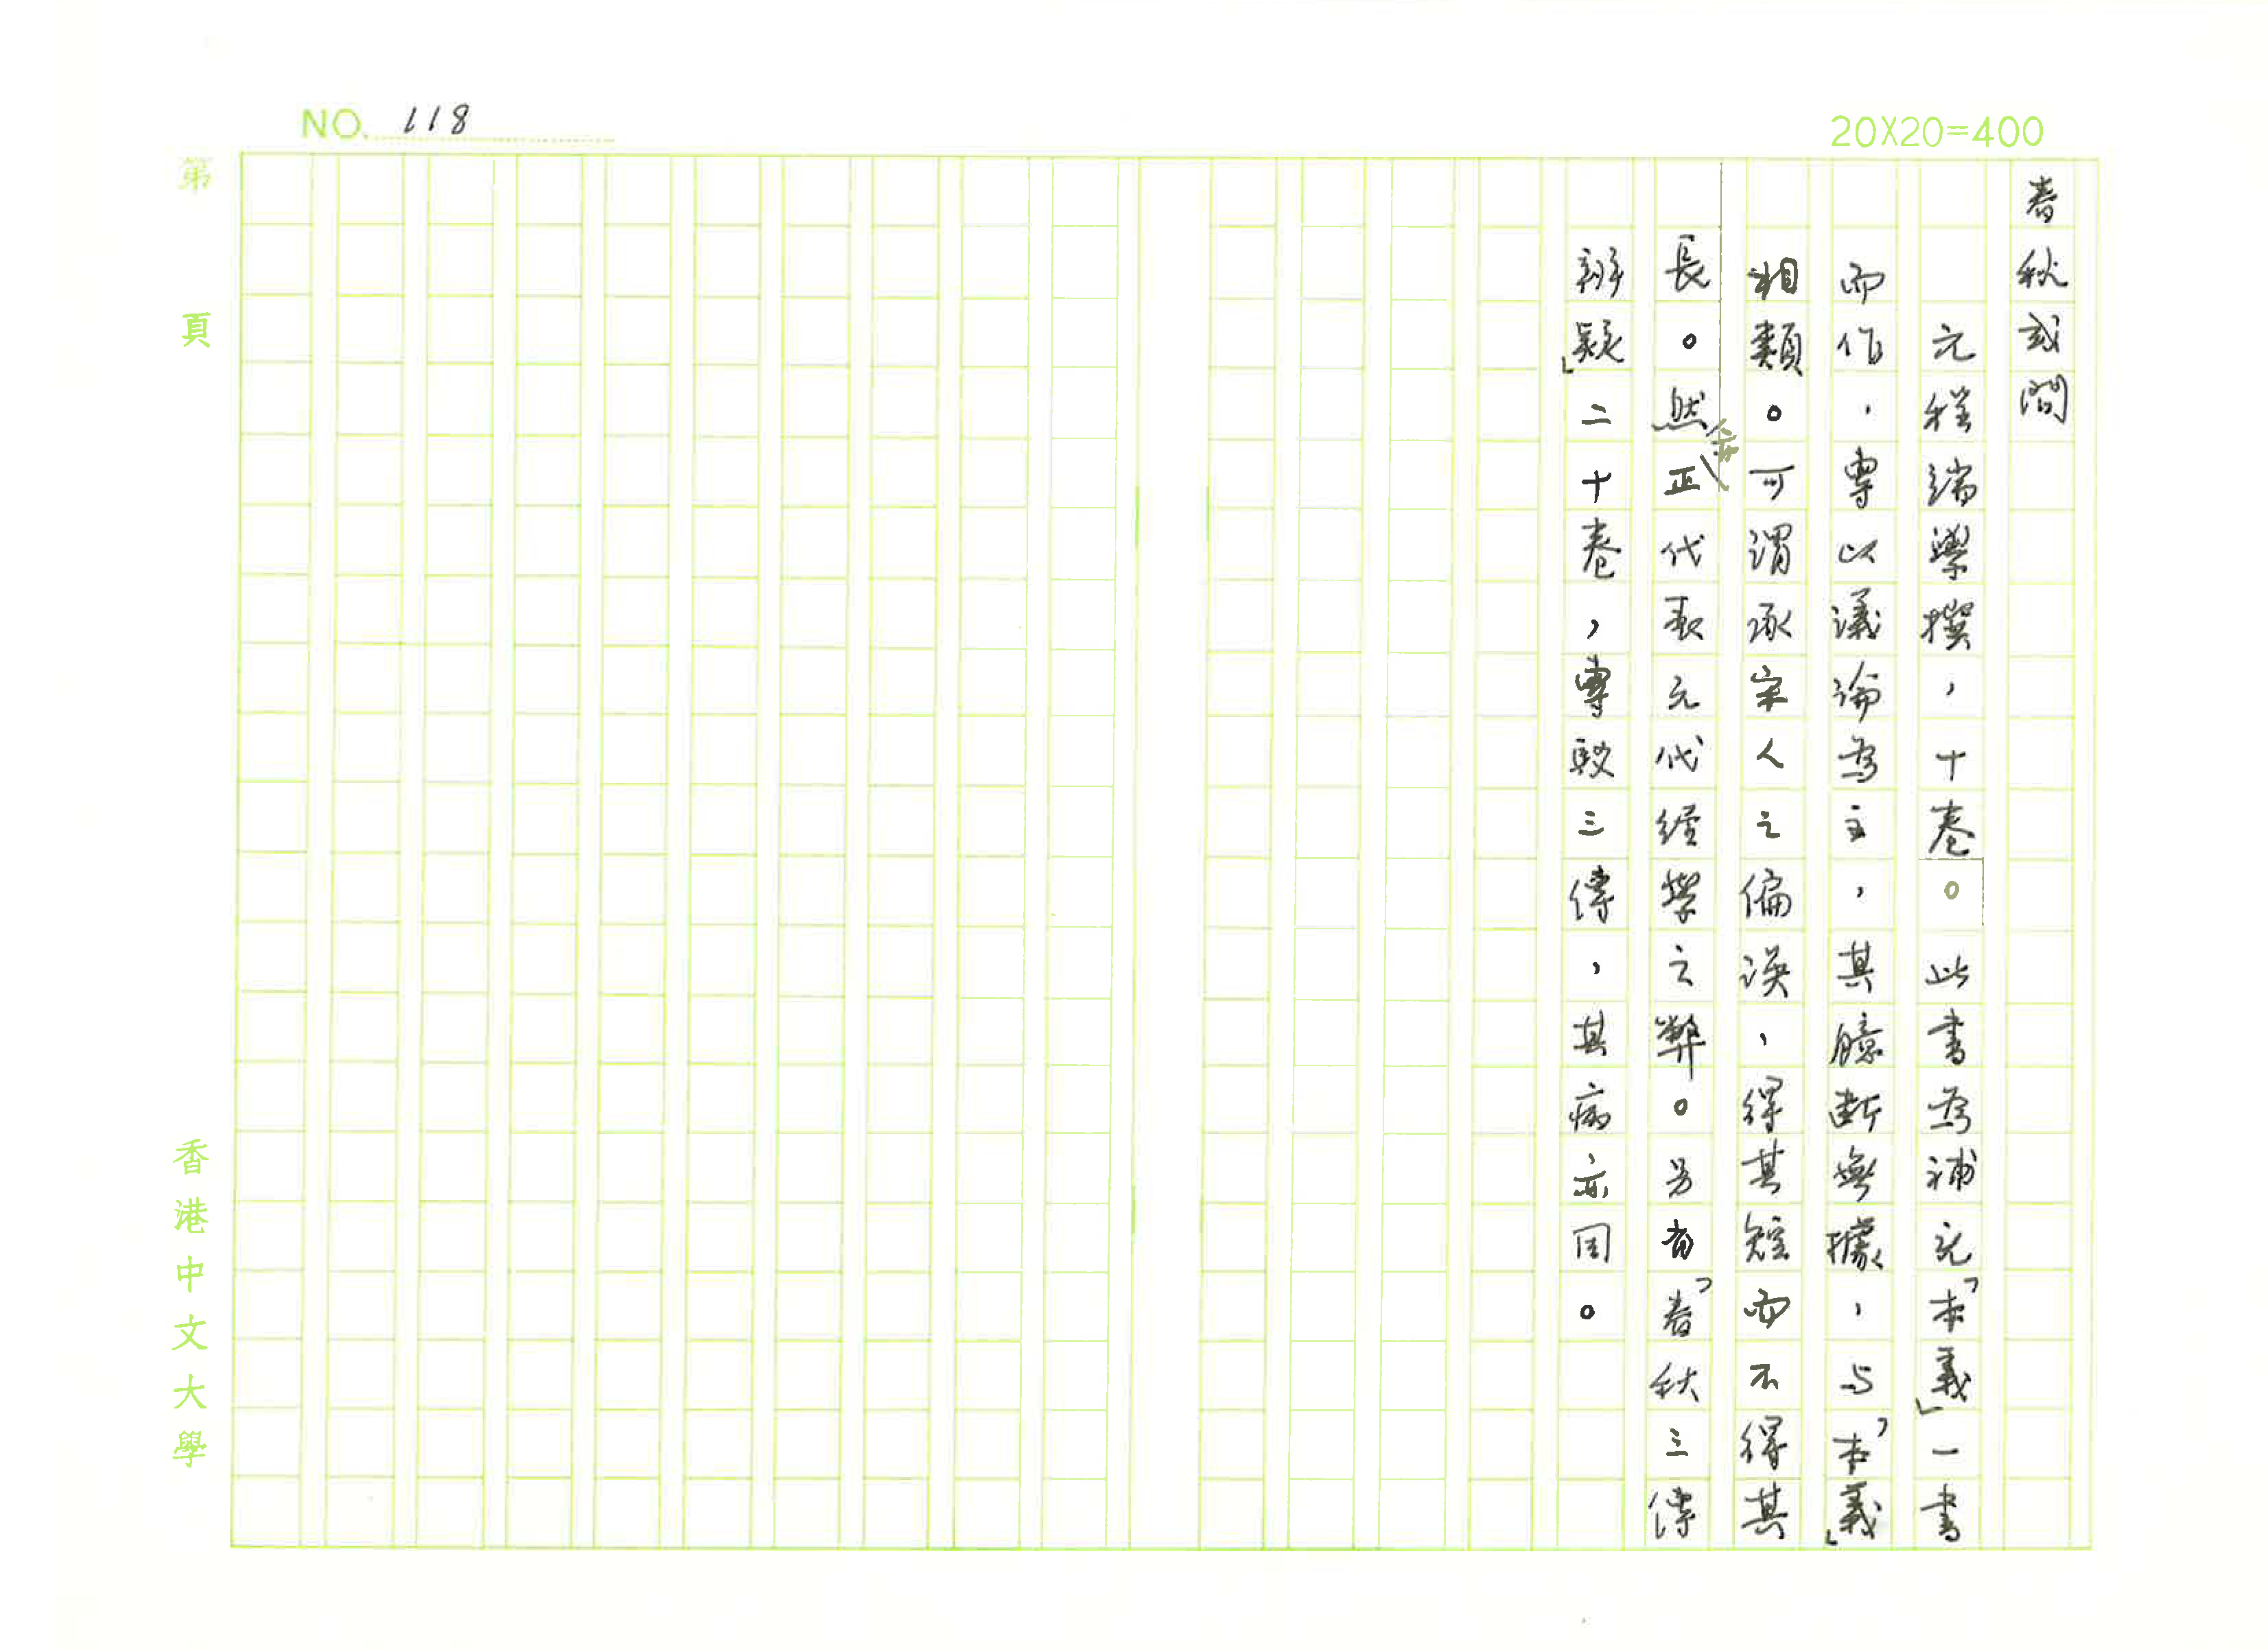 NO. 118
20X20=400
春秋或問
元程端學撰，十卷。此書為補充「本義」一書
而作，專以議論為主，其臆斷無據，与「本義」
相類。可謂承宋人之偏誤，得其短而不得其
長。然亦正代表元代經學之弊。另有「春秋三傳
辨疑」二十卷，專駁三傳，其病亦同。
第　頁
香港中文大學